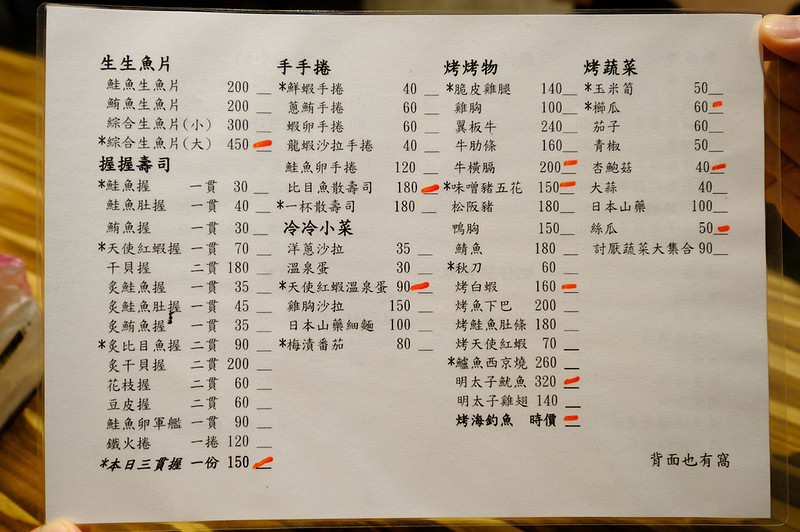 生生魚片
鮭魚生魚片 200 __
鮪魚生魚片 200 __
綜合生魚片(小) 300 __
*綜合生魚片(大) 450 __
握握壽司
*鮭魚握 一貫 30 __
鮭魚肚握 一貫 40 __
鮪魚握 一貫 30 __
*天使紅蝦握 一貫 70 __
干貝握 二貫 180 __
炙鮭魚握 一貫 35 __
炙鮭魚肚握 一貫 45 __
炙鮪魚握 一貫 35 __
*炙比目魚握 二貫 90 __
炙干貝握 二貫 200 __
花枝握 二貫 60 __
豆皮握 二貫 60 __
鮭魚卵軍艦 一貫 90 __
鐵火捲 一捲 120 __
*本日三貫握 一份 150 __
手手捲
*鮮蝦手捲 40 __
蔥鮪手捲 60 __
蝦卵手捲 60 __
龍蝦沙拉手捲 40 __
鮭魚卵手捲 120 __
比目魚散壽司 180 __
*一杯散壽司 180 __
冷冷小菜
洋蔥沙拉 35 __
溫泉蛋 30 __
*天使紅蝦溫泉蛋 90 __
雞胸沙拉 150 __
日本山藥細麵 100 __
*梅漬番茄 80 __
烤烤物
*脆皮雞腿 140 __
雞胸 100 __
翼板牛 240 __
牛肋條 160 __
牛橫膈 200 __
*味噌豬五花 150 __
松阪豬 180 __
鴨胸 150 __
鯖魚 180 __
*秋刀 60 __
烤白蝦 160 __
烤魚下巴 200 __
烤鮭魚肚條 180 __
烤天使紅蝦 70 __
*鱸魚西京燒 260 __
明太子魷魚 320 __
明太子雞翅 140 __
烤海釣魚 時價 __
烤蔬菜
*玉米筍 50 __
*櫛瓜 60 __
茄子 60 __
青椒 50 __
杏鮑菇 40 __
大蒜 40 __
日本山藥 100 __
絲瓜 50 __
討厭蔬菜大集合 90 __
背面也有窩